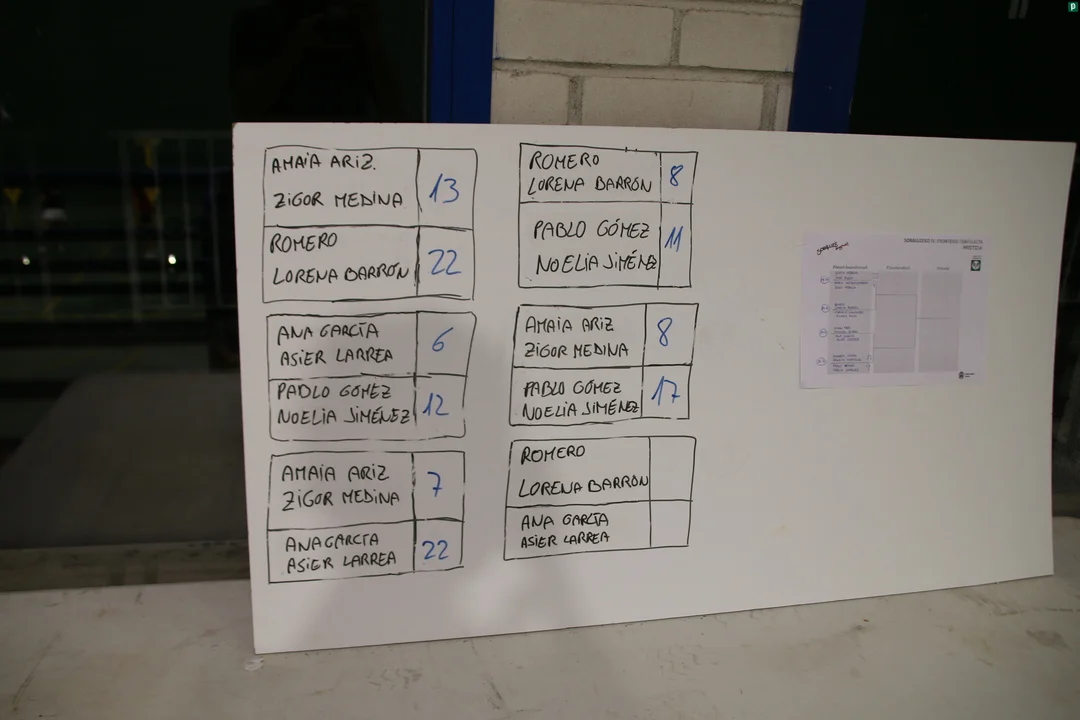 AMAIA ARIZ.
ZIGOR MEDINA
13
ROMERO
LORENA BARRÓN
22
ANA GARCÍA
ASIER LARREA
6
PABLO GÓMEZ
NOELIA JIMÉNEZ
12
AMAIA ARIZ
ZIGOR MEDINA
7
ANA GARCÍA
ASIER LARREA
22
ROMERO
LORENA BARRÓN
8
PABLO GÓMEZ
NOELIA JIMÉNEZ
11
AMAIA ARIZ
ZIGOR MEDINA
8
PABLO GÓMEZ
NOELIA JIMÉNEZ
17
ROMERO
LORENA BARRÓN
ANA GARCÍA
ASIER LARREA